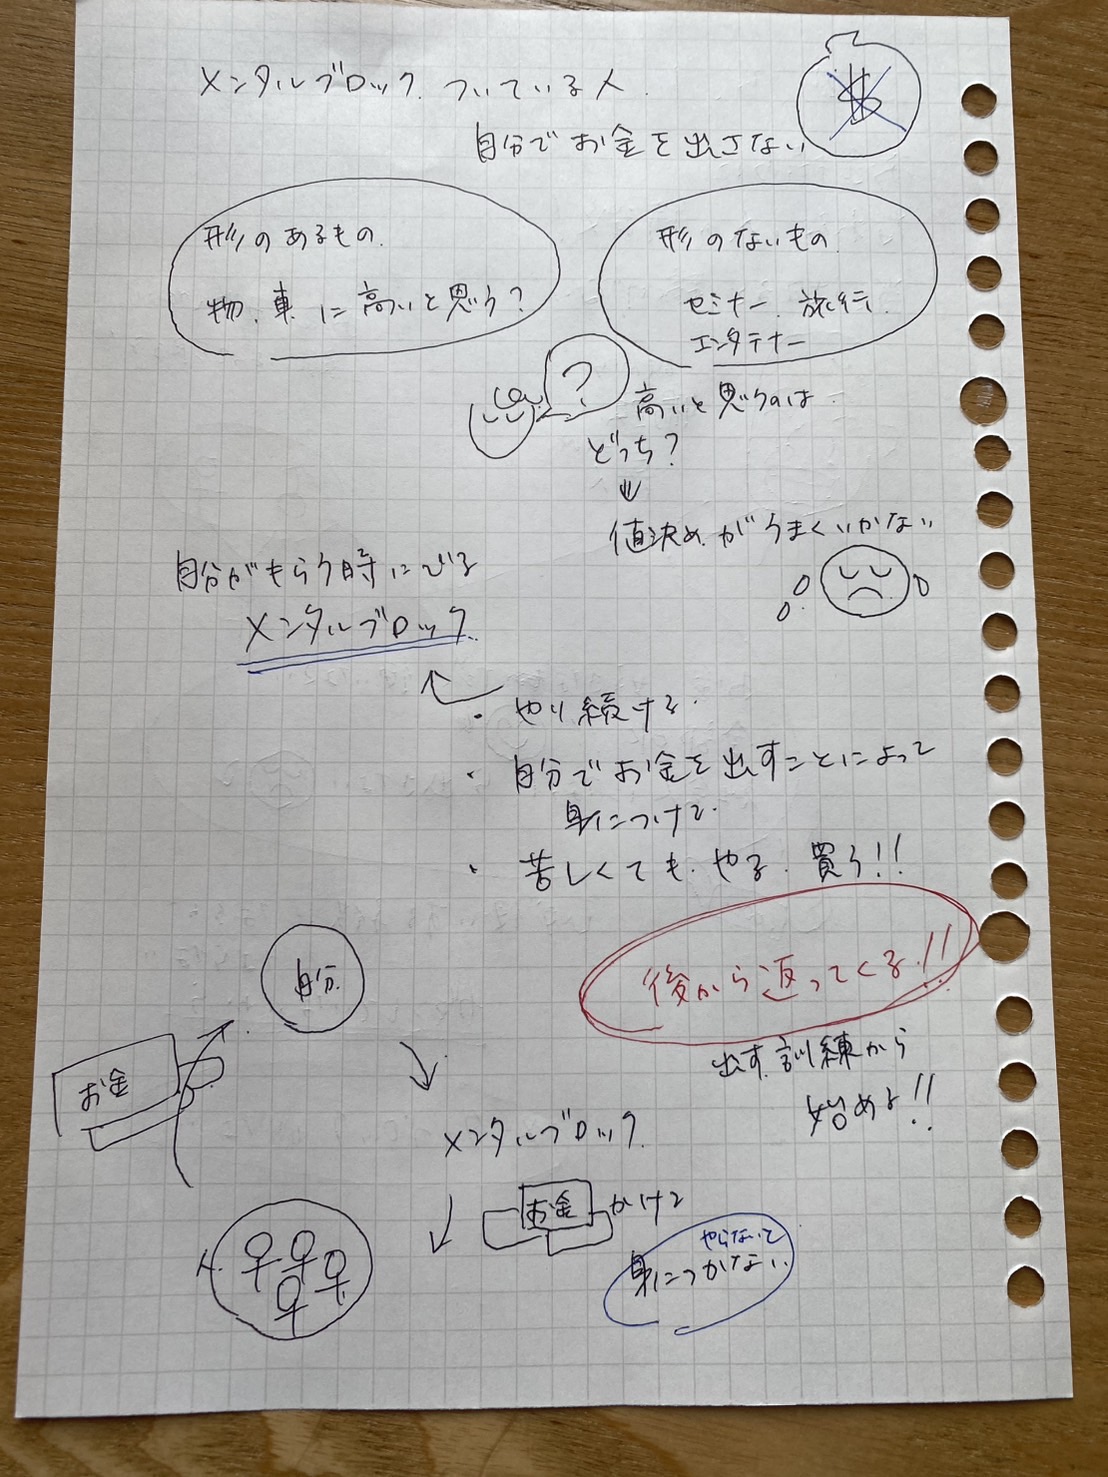 メンタルブロックついている人
自分でお金を出さない
$
形のあるもの
物、車に高いと思う?
形のないもの
セミナー、旅行
エンタテナー
?
高いと思うのは
どっち?
↓
値決めがうまくいかない
自分がもらう時にでる
メンタルブロック
・やり続ける
・自分でお金を出すことによって
身につける
・苦しくてもやる、買う!!
後から返ってくる!!
出す訓練から
始めよ!!
自分
お金
メンタルブロック
お金 かけて
やらないと
身につかない
人